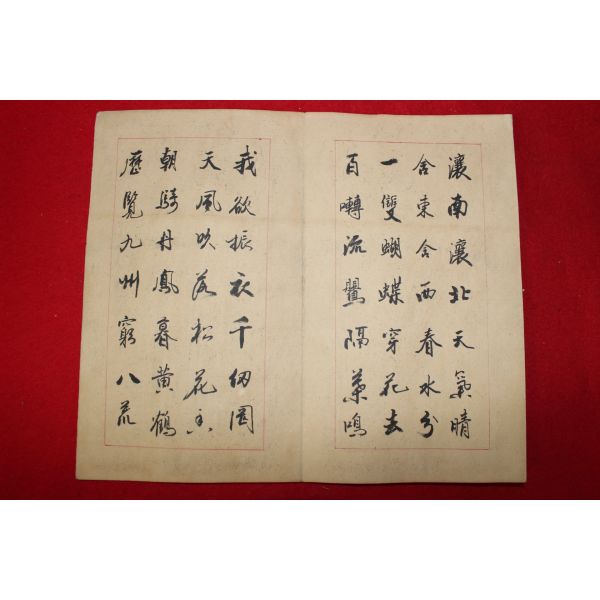 瀼南瀼北天氣晴
舍東舍西春水分
一雙蝴蝶穿花去
百囀流鶯隔葉鳴
我欲振衣千仞岡
天風吹落松花香
朝騎丹鳳暮黄鶴
歷覽九州窮八荒